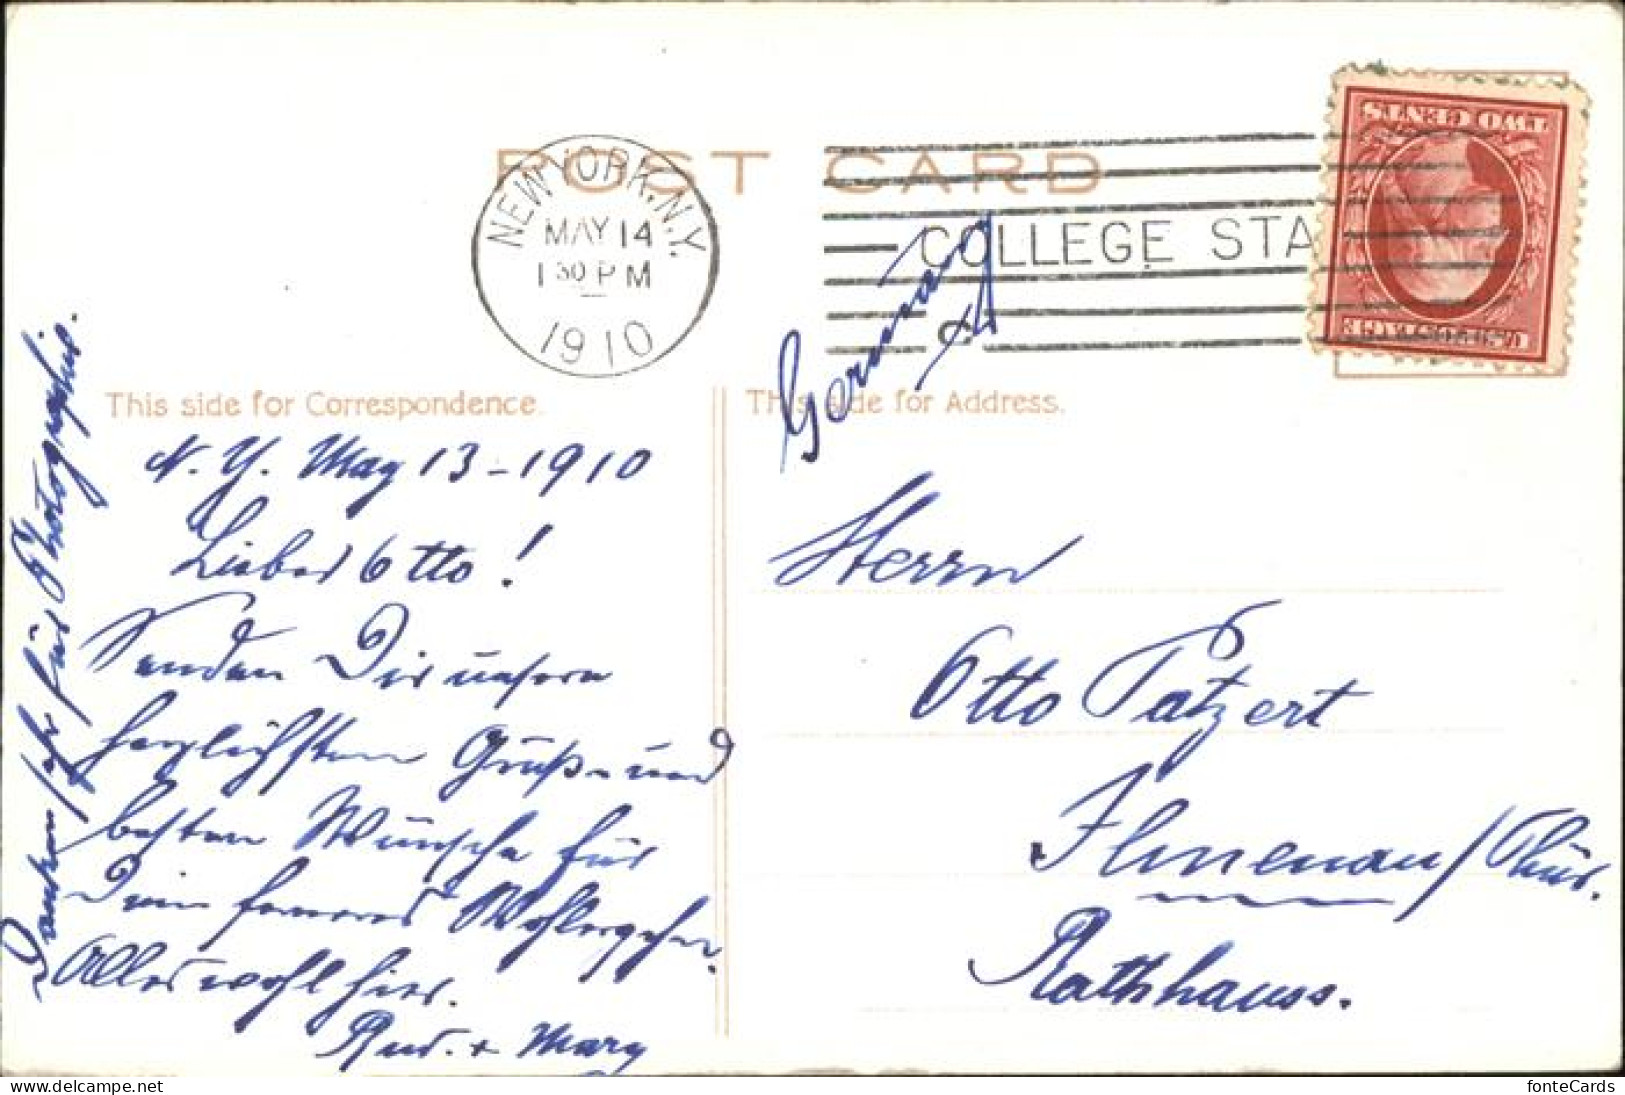 POST CARD
NEW YORK, N.Y.
MAY 14
1 30 PM
1910
COLLEGE STA
TWO CENTS
U.S. POSTAGE
This side for Correspondence.
This side for Address.
Germany
N. Y. May 13 - 1910
Lieber Otto!
Senden Dir unsern
herzlichsten Gruß und
besten Wünsche für
Dein ferneres Wohlergehn.
Alles wohl hier.
Rud. + Mary
Danken sehr für Photographie.
Herrn
Otto Patzert
Ilmenau / Thür.
Rathhauss.
fonteCards